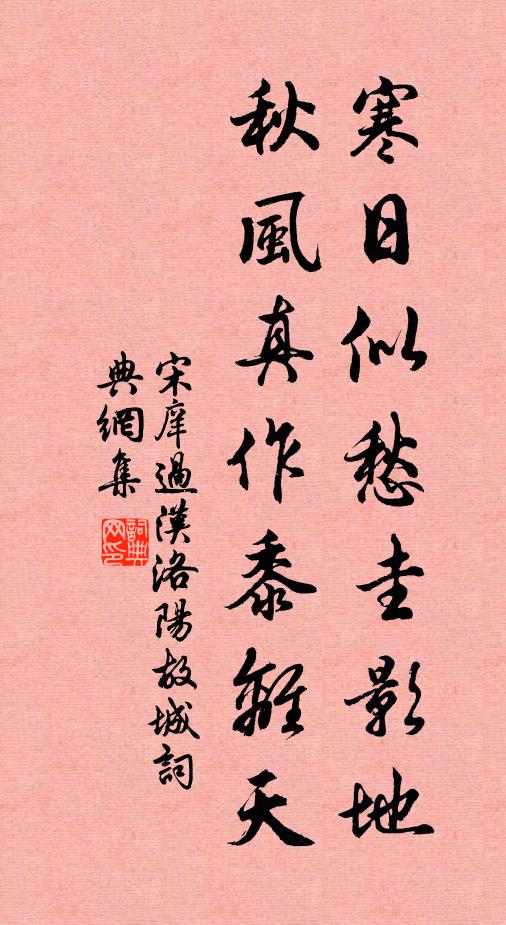 寒日似愁圭影地
秋風真作黍離天
宋庠過漢洛陽故城詞
典網集
詞典
网印